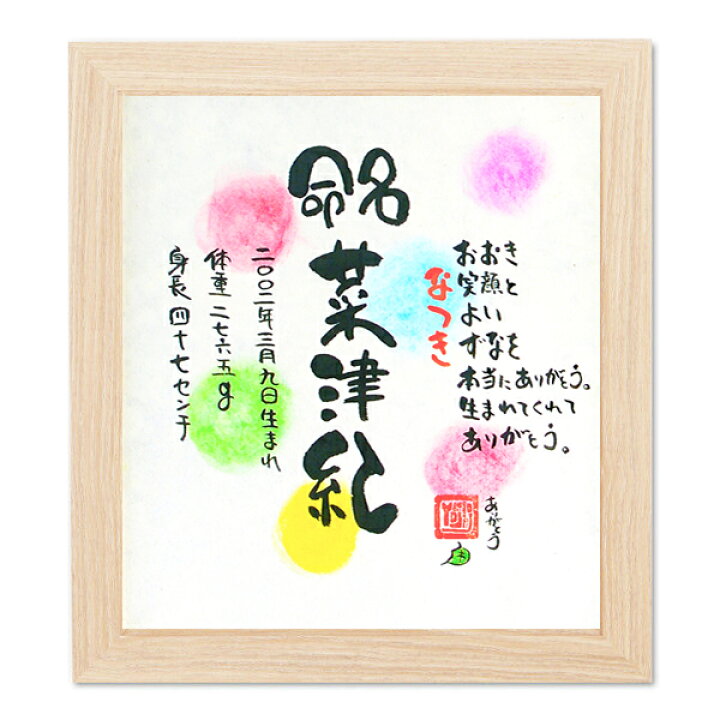 命名
菜津紀
なつき
本当にありがとう。
生まれてくれて
ありがとう。
ありがとう
二〇〇二年三月九日生まれ
体重二七六五g
身長四十七センチ